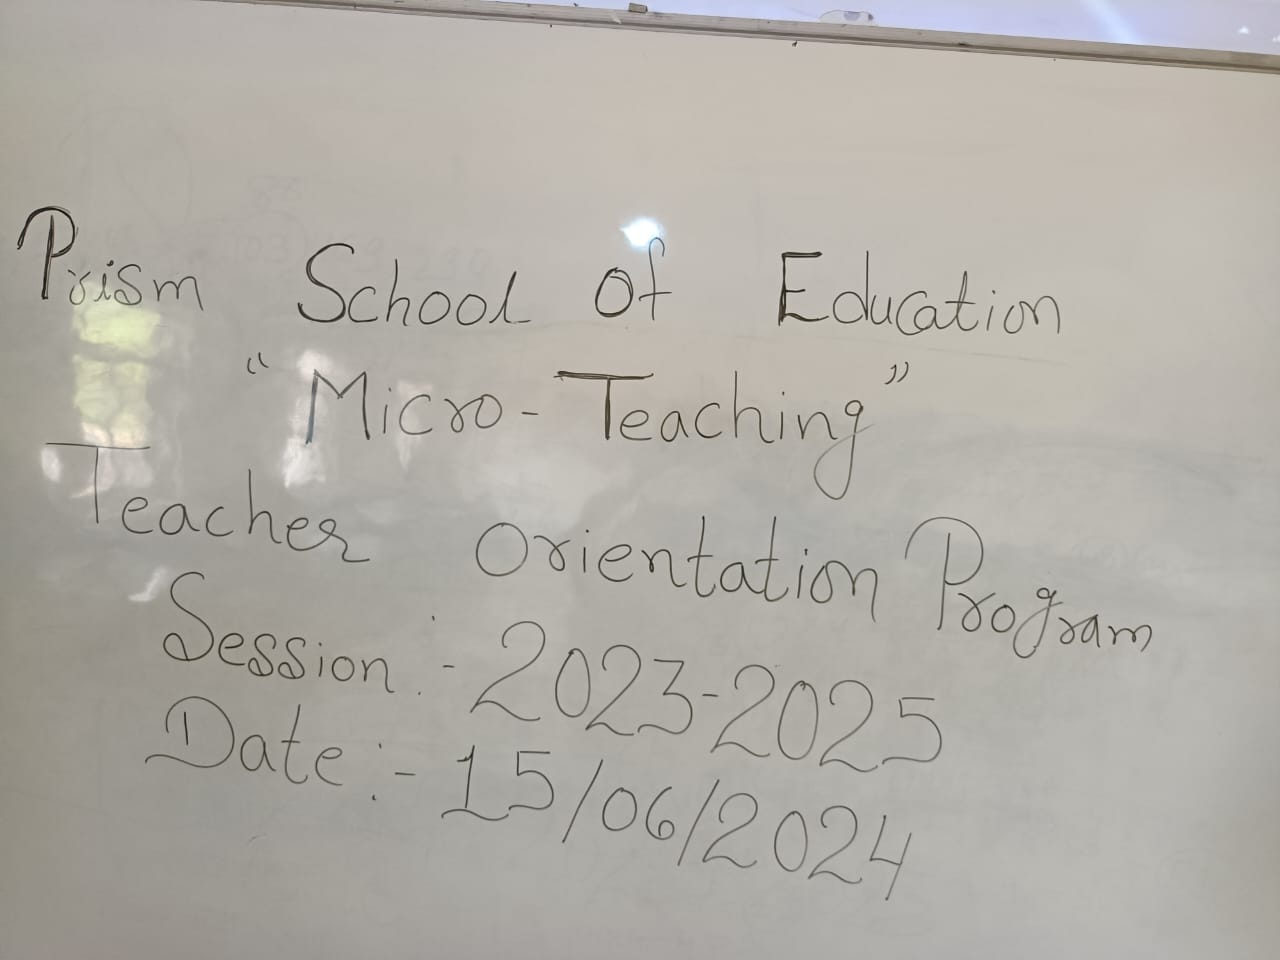 Prism School Of Education
"Micro-Teaching"
Teacher Orientation Program
Session :- 2023-2025
Date :- 15/06/2024